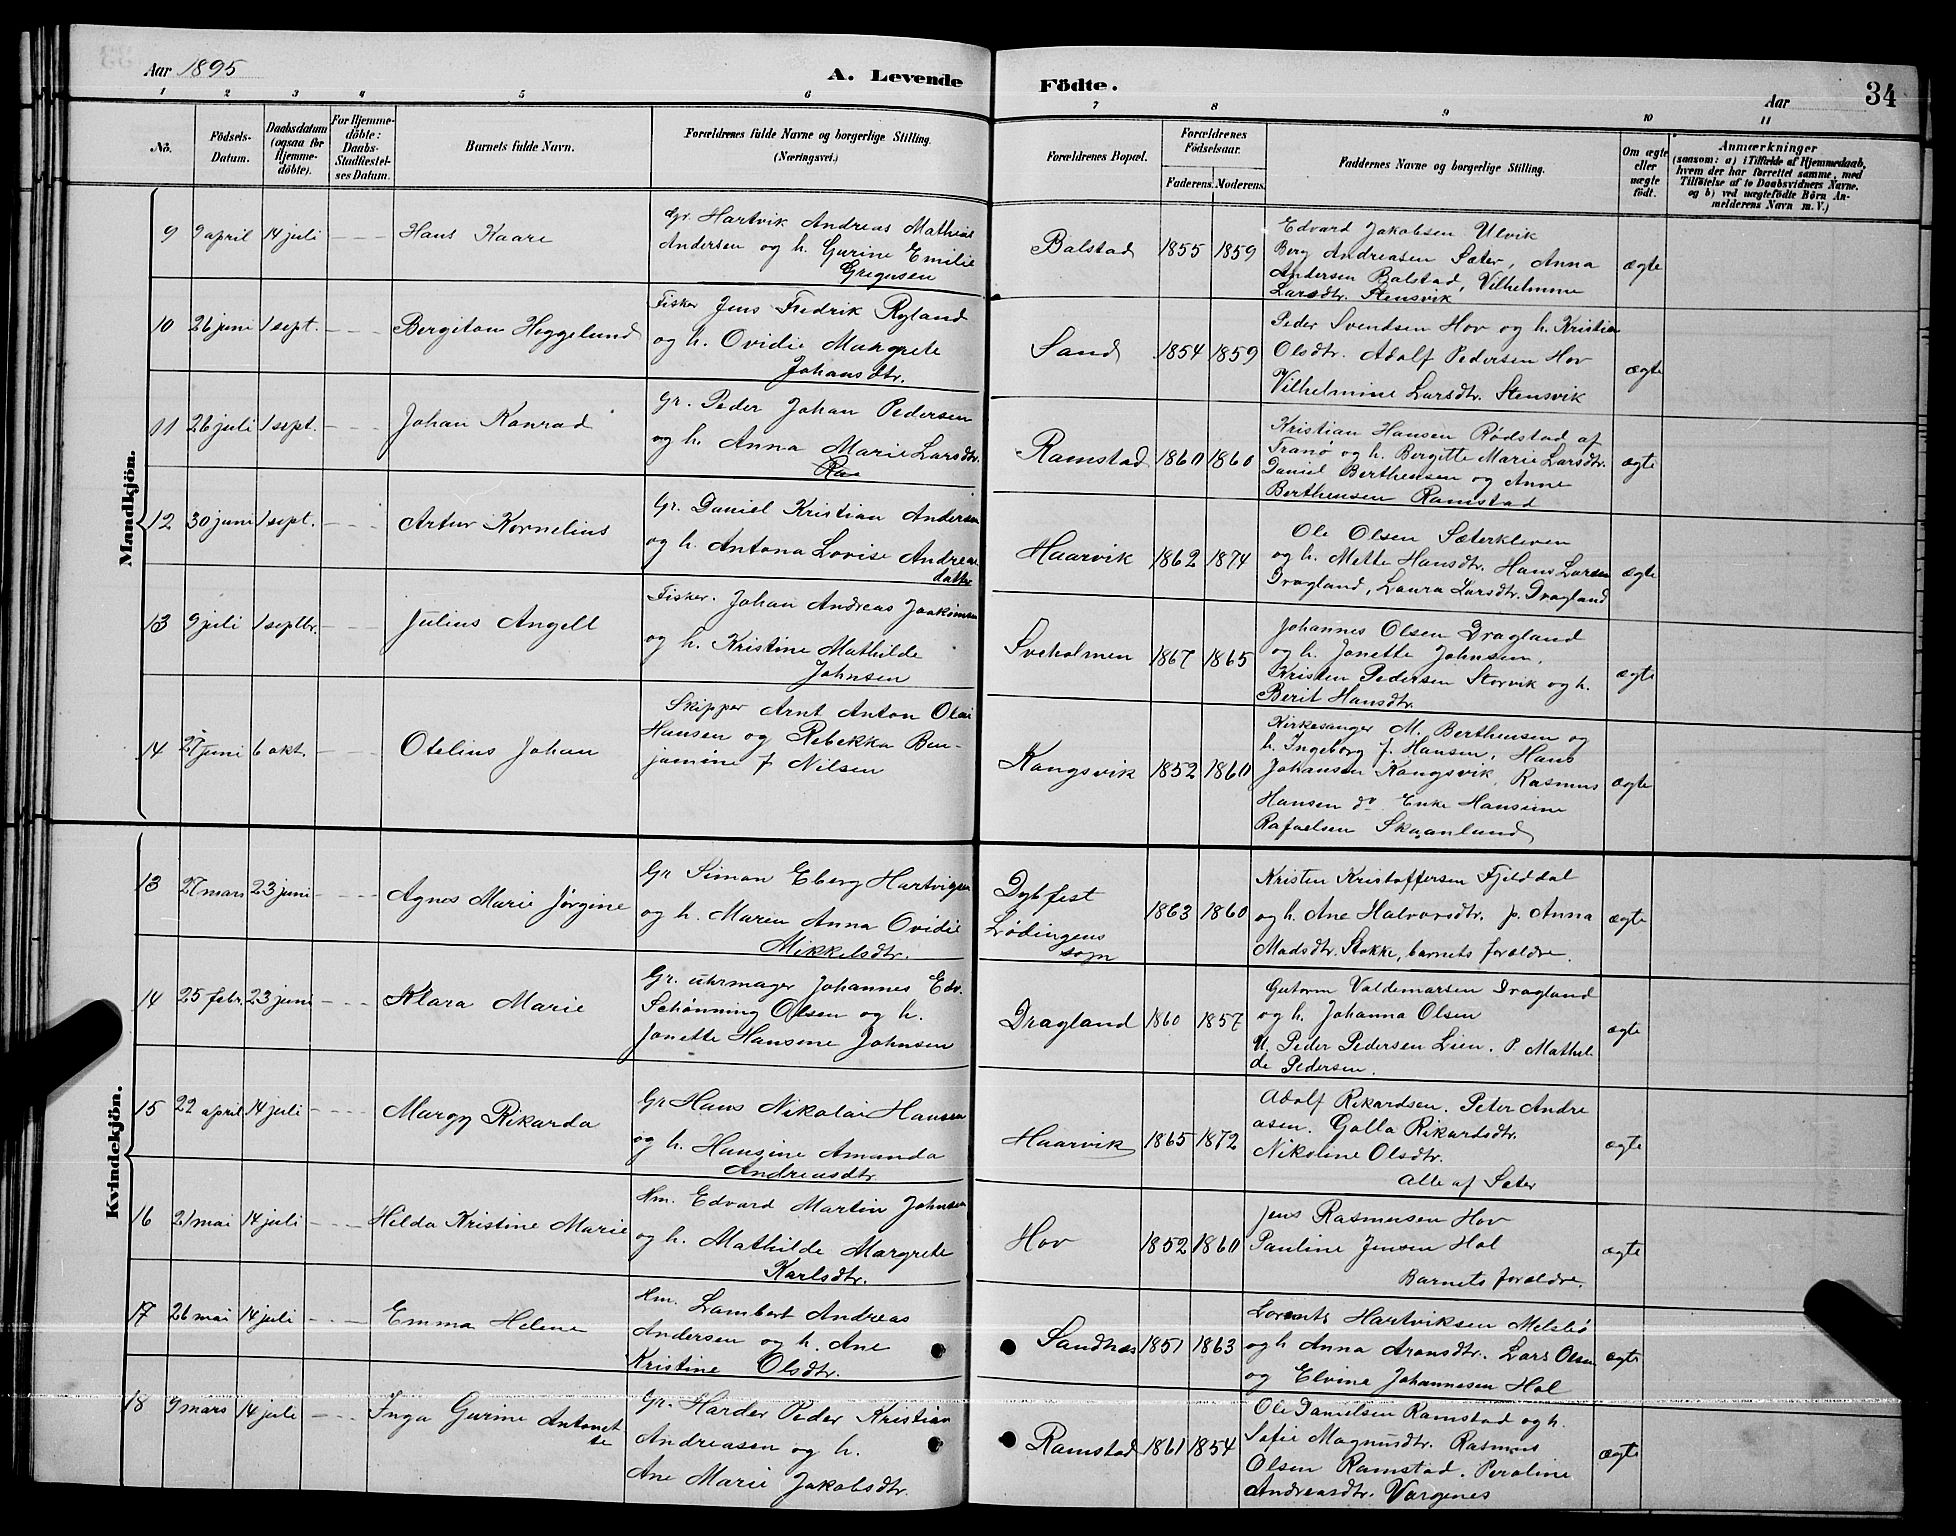 Aar 1895
A. Levende
Fødte.
Aar
34
1 2 3 4 5 6 7 8 9 10 11
No.
Fødsels-Datum.
Daabsdatum (ogsaa for Hjemme-døbte).
For Hjemme-døbte: Daabs-Stadfæstel-ses Datum.
Barnets fulde Navn.
Forældrenes fulde Navne og borgerlige Stilling. (Næringsvei.)
Forældrenes Bopæl.
Forældrenes Fødselsaar.
Faderens. Moderens.
Faddernes Navne og borgerlige Stilling.
Om ægte eller uægte født.
Anmærkninger
(saasom: a) i Tilfælde af Hjemmedaab,
hvem der har forrettet samme, med
Tilføielse af to Daabsvidners Navne.
og b) ved uægtefødte Børn An-
melderens Navn m. V.)
Mandkjøn.
9 9 april 14 juli Hans Kaare
Gr. Hartvik Andreas Mathias
Andersen og h. Gurine Emilie
Gregusen
Balstad 1855 1859
Edvard Jakobsen Ulvik
Berg Andreasen Sæter, Anna
Andersen Balstad, Vilhelmine
Larsdtr. Stensvik
ægte
10 26 juni 1 sept. Bergiton Heggelund
Fisker Jens Fredrik Ryland
og h. Ovidie Margrete
Johansdtr.
Sand 1854 1859
Peder Svendsen Hov og h. Kristin
Olsdtr. Adolf Pedersen Hov
Vilhelmine Larsdtr. Stensvik
ægte
11 26 juli 1 sept. Johan Konrad
Gr. Peder Johan Pedersen
og h. Anna Marie Larsdtr.
Raa
Ramstad 1860 1860
Kristian Hansen Rødstad af
Tranø og h. Bergitte Marie Larsdtr.
Daniel Berthensen og Anne
Berthensen Ramstad
ægte
12 30 juni 1 sept. Artur Kornelius
Gr. Daniel Kristian Andersen
og h. Antona Lovise Andreas
datter
Haarvik 1862 1874
Ole Olsen Sæterkleven
og h. Mette Hansdtr. Hans Larsen
Dragland, Laura Larsdtr. Dragland
ægte
13 9 juli 1 septbr. Julius Angell
Fisker. Johan Andreas Joakimsen
og h. Kristine Mathilde
Johnsen
Sveholmen 1867 1865
Johannes Olsen Dragland
og h. Jonette Johnsen.
Kristen Pedersen Storvik og h.
Berit Hansdtr.
ægte
14 27 juni 6 okt. Otelius Johan
Skipper Arnt Anton Olai
Hansen og Rebekka Ben-
jamine f. Nilsen
Kongsvik 1852 1860
Kirkesanger M. Berthensen og
h. Ingeborg f. Hansen, Hans
Johansen Kongsvik, Rasmus
Hansen do. Enke Hansine
Rafaelsen Skaanlund
ægte
Kvindekjøn.
13 27 mars 23 juni Agnes Marie Jørgine
Gr Simon Eberg Hartvigsen
og h. Maren Anna Ovidie
Mikkelsdtr.
Dybfest
Lødingens
sogn
1863 1860
Kristen Kristoffersen Fjelddal
og h. Ane Halvorsdtr. p. Anna
Madsdtr. Stokke, barnets forældre.
ægte
14 25 febr. 23 juni Klara Marie
Gr. uhrmager Johannes Edv.
Schønning Olsen og h.
Jonette Hansine Johnsen
Dragland 1860 1857
Gutorm Valdemarsen Dragland
og h. Johanna Olsen
U. Peder Pedersen Lien. P. Mathil-
de Pedersen.
ægte
15 22 april 14 juli Margy Rikarda
Gr Hans Nikolai Hansen
og h. Hansine Amanda
Andreasdtr.
Haarvik 1865 1872
Adolf Rikardsen. Peter Andre
asen. Golla Rikardsdtr.
Nikoline Olsdtr.
Alle af Sæter
ægte
16 21 mai 14 juli Hilda Kristine Marie
Hm. Edvard Martin Johnsen
og h. Mathilde Margrete
Karlsdtr.
Hov 1852 1860
Jens Rasmussen Hov
Pauline Jensen Hol
Barnets forældre.
ægte
17 26 mai 14 juli Emma Helene
Hm. Lambert Andreas
Andersen og h. Ane
Kristine Olsdtr.
Sandnæs 1857 1863
Lorents Hartviksen Melsbø
og h Anna Aronsdtr. Lars Olsen
og Elvine Johannesen Hol
ægte
18 9 mars 14 juli Inga Gurine Antonet
te
Gr. Harder Peder Kristian
Andreasen og h.
Ane Marie Jakobsdtr.
Ramstad 1861 1854
Ole Danielsen Ramstad og h.
Sofie Magnusdtr. Rasmus
Olsen Ramstad. Peroline
Andreasdtr. Vargenes
ægte